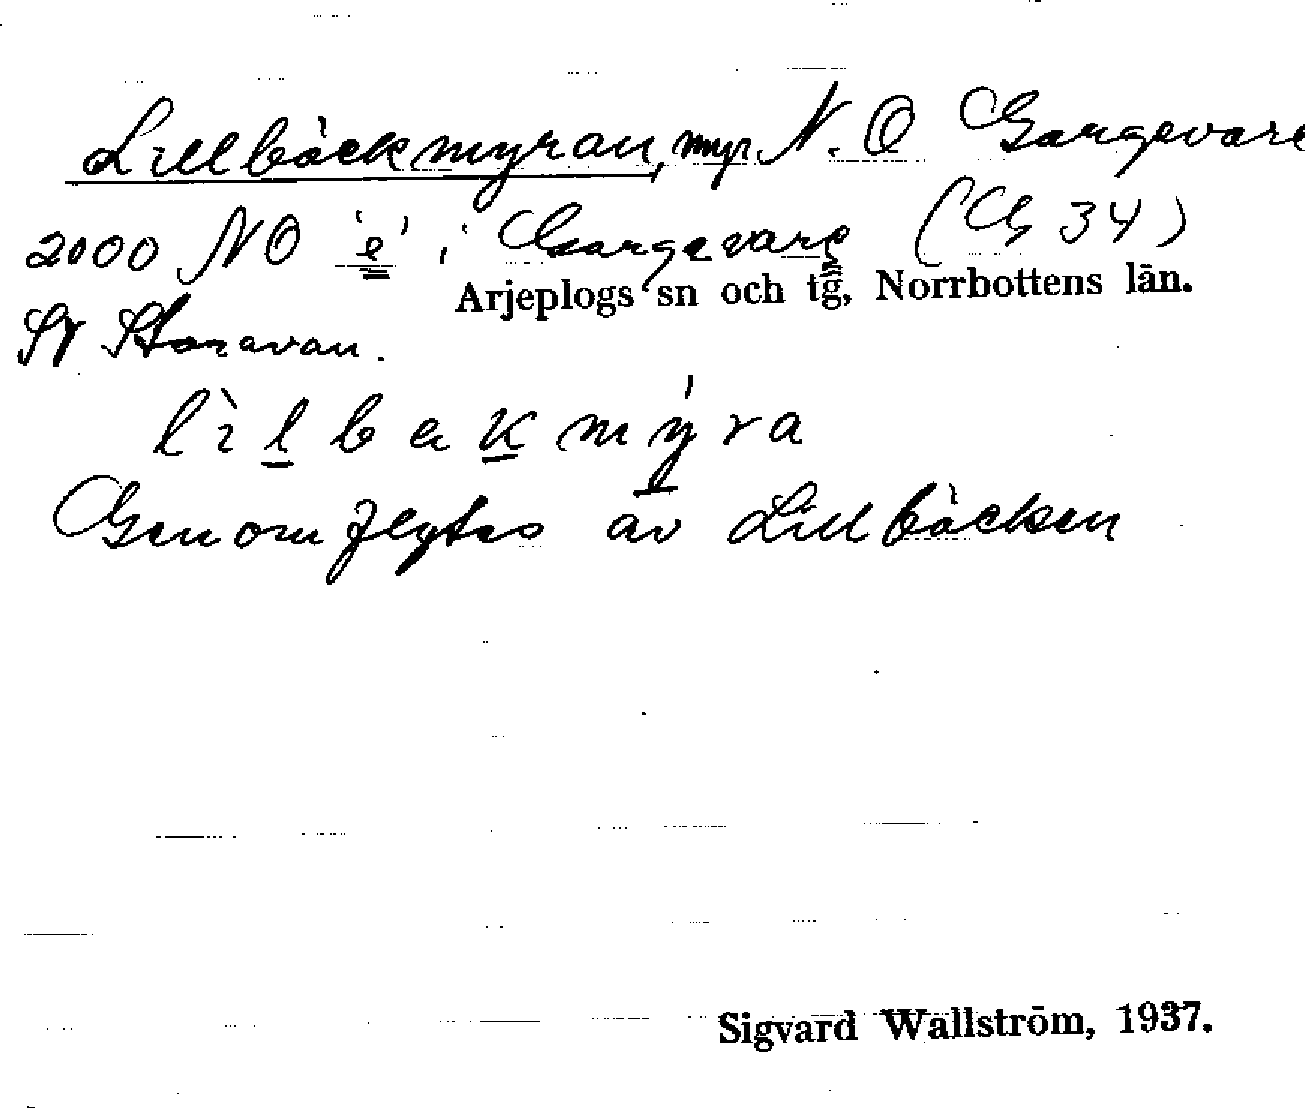 Lillbäckmyran, myr N. O Gargevare
2000 NO "e" i Gargevare (Cg 34)
Arjeplogs sn och tg, Norrbottens län.
Sv Storavan.
lìlbakmýra
Genomflytes av Lillbäcken
Sigvard Wallström, 1937.